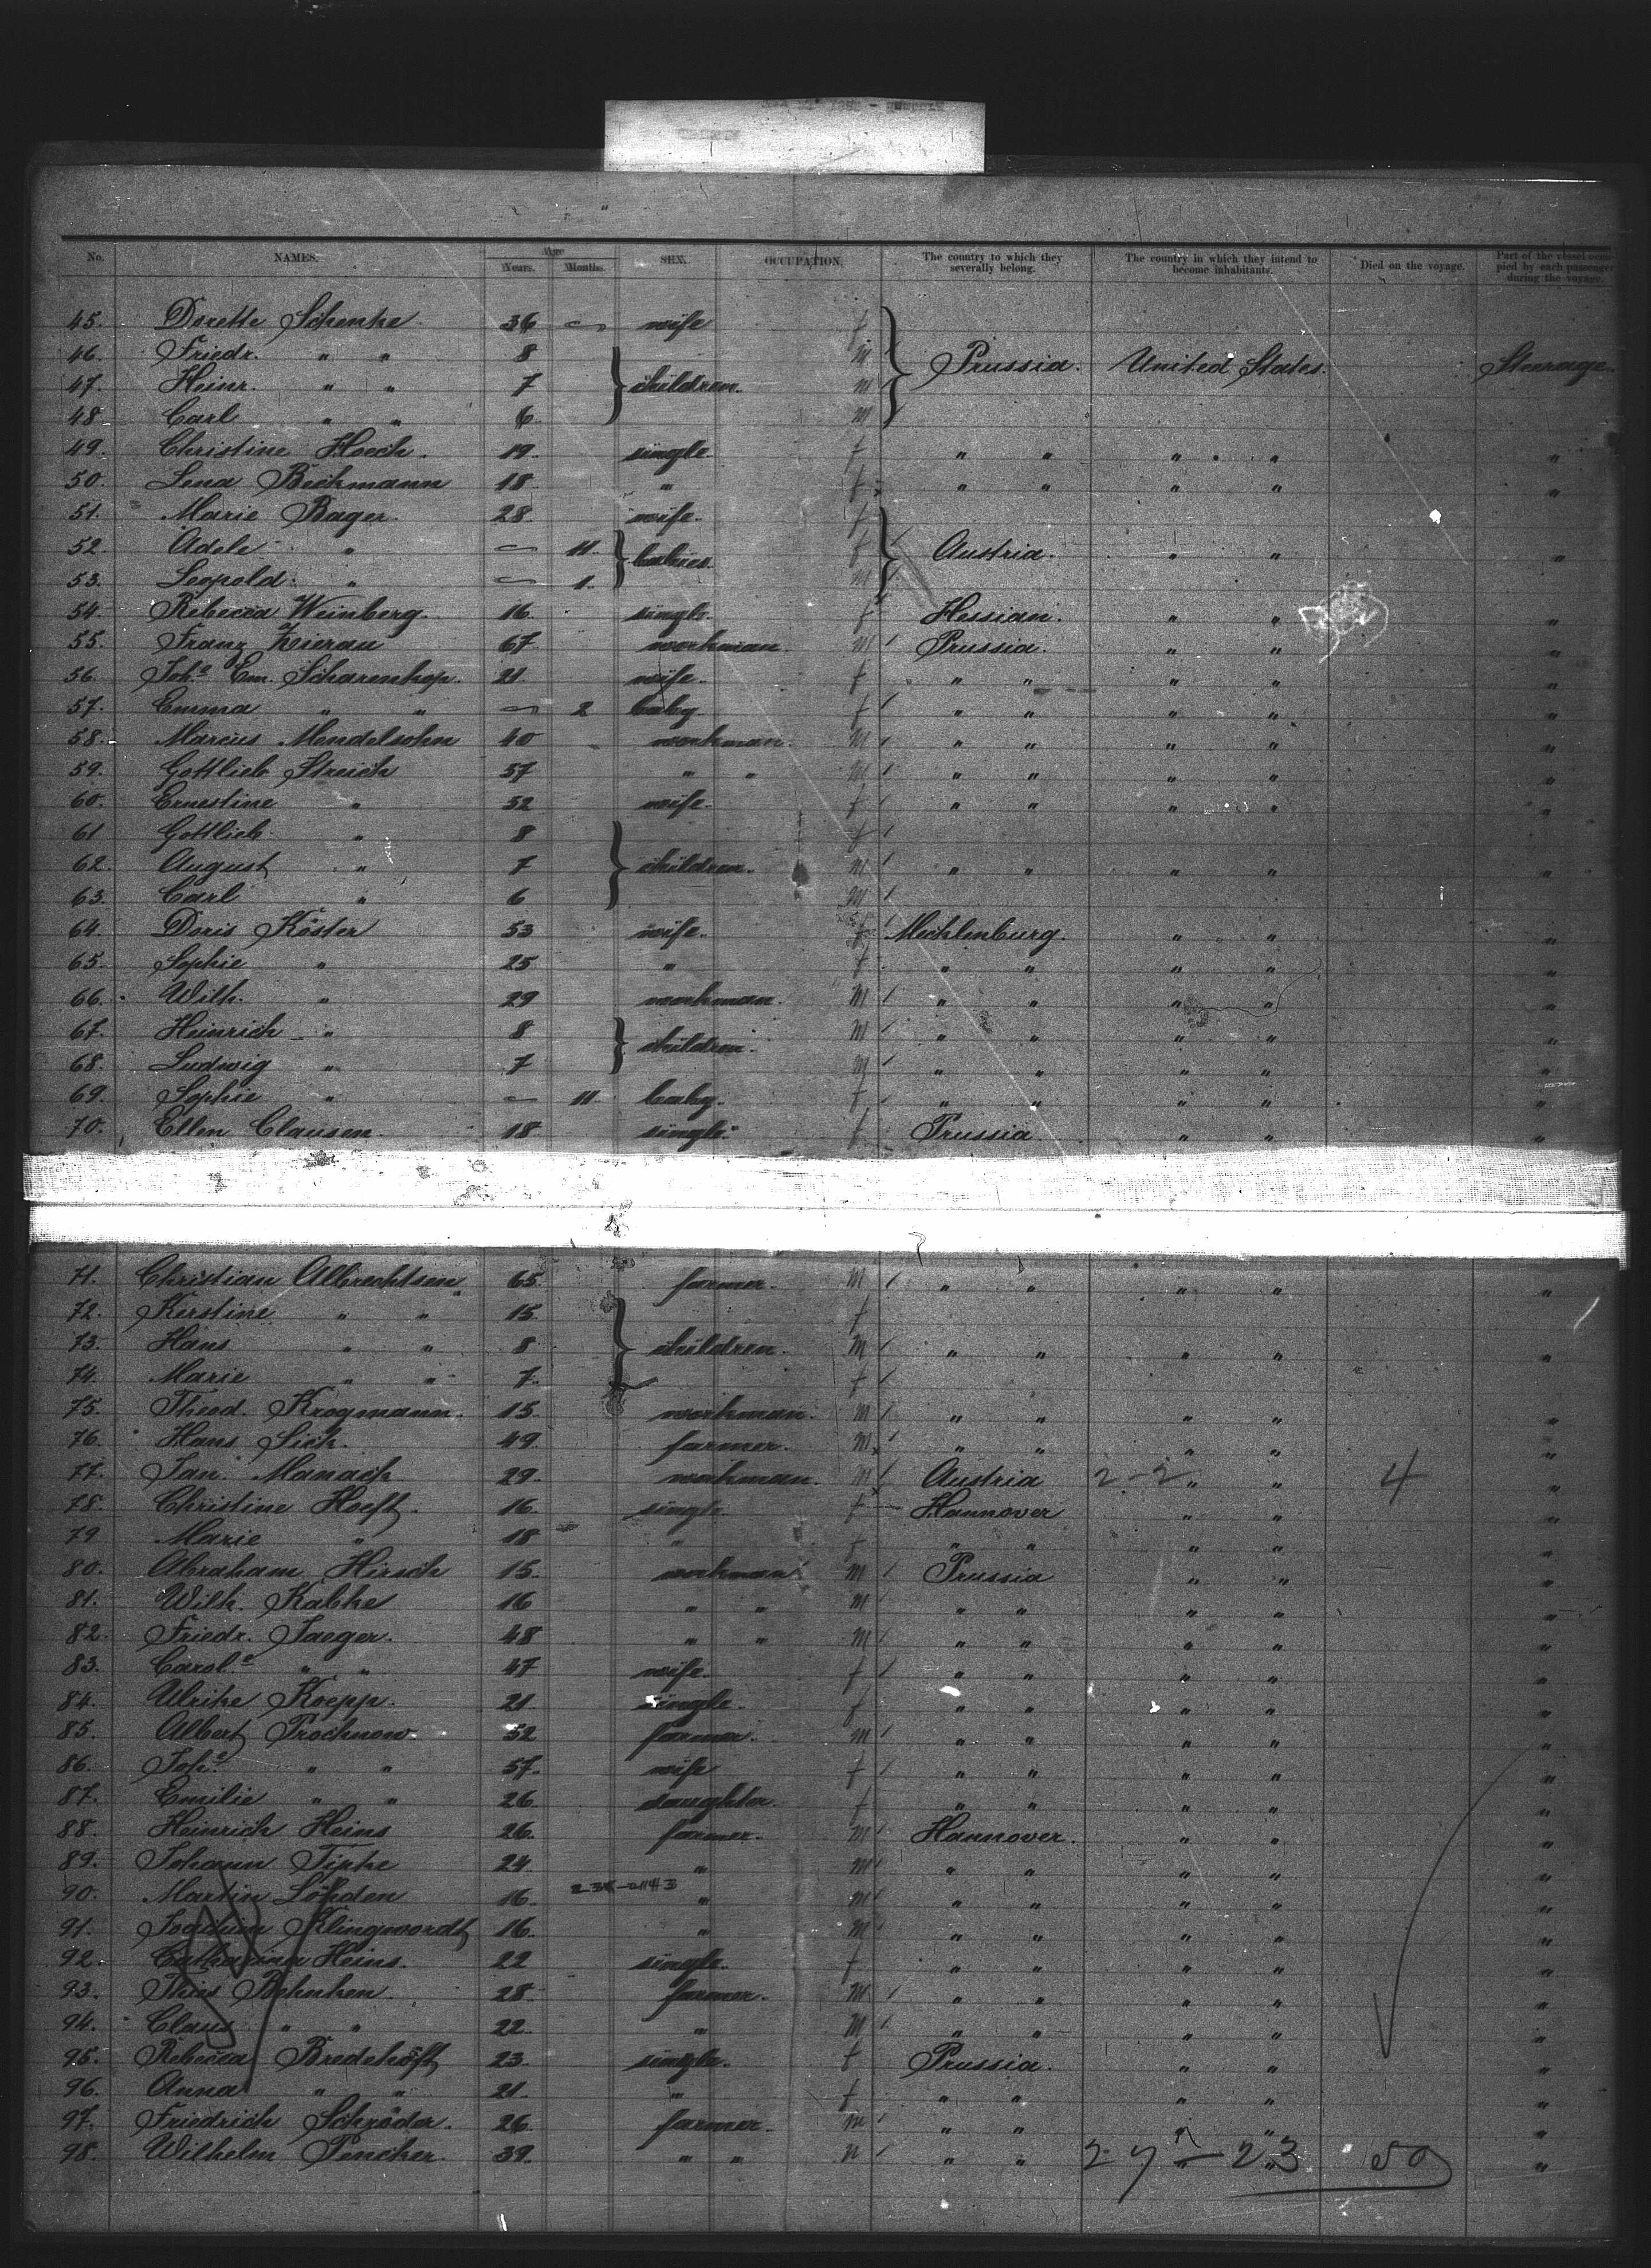 No. NAMES. Age Years. Months. SEX. OCCUPATION. The country to which they severally belong. The country in which they intend to become inhabitants. Died on the voyage. Part of the vessel occupied by each passenger during the voyage.
45. Dorette Schenke 36 — wife f
46. Friedr. " " 8 m Prussia. United States. Steerage.
47. Heinr. " " 7 children. m
48. Carl " " 6 m
49. Christine Hoech. 19. single. f " " " " "
50. Lena Beckmann 18 " f " " " " "
51. Marie Bager. 28. wife. f
52. Adele " — 11. babies. f Austria. " " "
53. Leopold " — 1. m
54. Rebecca Weinberg. 16. single. f Hessian. " " "
55. Franz Zierau 67 workman m Prussia. " " "
56. Joh.a Em. Scharenhop. 21. wife. f " " " " "
57. Emma " " — 2 baby. f " " " " "
58. Marcus Mendelsohn 40 workman. m " " " " "
59. Gottlieb Streich 57 " " m " " " " "
60. Ernestine " 52 wife. f " " " " "
61 Gottlieb " 8 f
62. August " 7 children. m " " " " "
63. Carl " 6 m
64. Doris Köster 53 wife. f Mecklenburg. " " "
65. Sophie " 25 " f " " " " "
66. Wilh. " 29 workman. m " " " " "
67. Heinrich " 8 children. m " " " " "
68. Ludwig " 7 m " " " " "
69. Sophie " — 11 baby. f " " " " "
70. Ellen Clausen 18 single. f Prussia " " "
71. Christian Albrechtsen 65 farmer. m " " " " "
72. Kerstine " " 15. f
73. Hans " " 8 children. m " " " " "
74. Marie " " 7. f
75. Theod. Krogmann. 15. workman. m " " " " "
76. Hans Sick. 49. farmer. m " " " " "
77. Jan Manach 29. workman. m Austria 2-2 " " 4 "
78. Christine Hoeft. 16. single f Hannover " " "
79 Marie " 18 " f " " " " "
80. Abraham Hirsch 15. workman m Prussia " " "
81. Wilh. Kabke 16 " " m " " " " "
82. Friedr. Jaeger. 48 " " m " " " " "
83. Carol.e " " 47 wife. f " " " " "
84. Ulrike Koepp. 21 single. f " " " " "
85. Albert Prochnow. 52 farmer. m " " " " "
86. Joh.a " " 57. wife f " " " " "
87. Emilie " " 26. daughter. f " " " " "
88. Heinrich Heins 26. farmer. m Hannover. " " "
89. Johann Tipke 24. " m " " " " "
90. Martin Löhden 16. " m " " " " "
91. Joachim Klingwordt 16. " m " " " " "
92. Catharina Heins. 22 single. f " " " " "
93. Thies Behnken. 28 farmer. m " " " " "
94. Claus " " 22. " m " " " " "
95. Rebecca Bredehöft 23. single. f Prussia. " " "
96. Anna " " 21. " f " " " " "
97. Friedrich Schröder. 26 farmer. m " " " " "
98. Wilhelm Pencker. 39. " " m " " 27 - 23 50 "